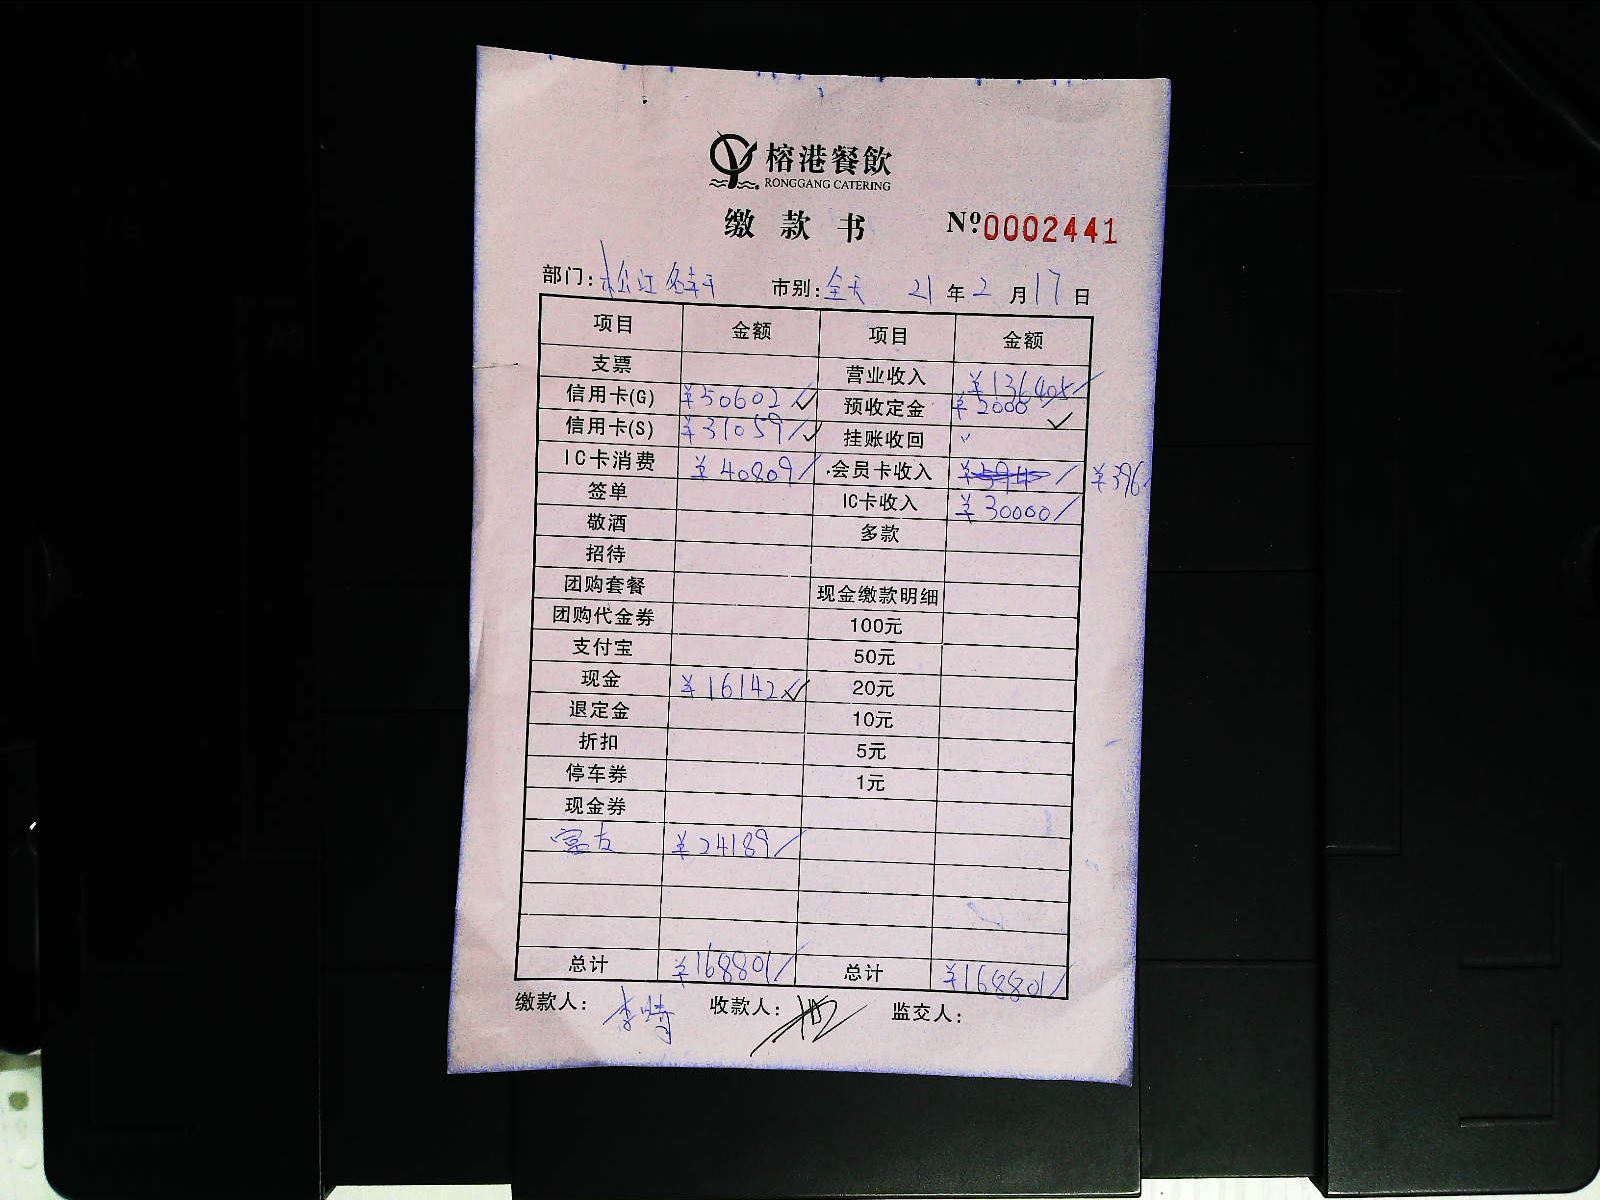 榕港餐飲
RONGGANG CATERING
缴款书 Nº 0002441
部门: 松江 市别: 全天 21 年 2 月 17 日
项目 金额 项目 金额
支票 营业收入 ¥136405
信用卡(G) ¥50602 预收定金 ¥2000
信用卡(S) ¥37059 挂账收回
IC卡消费 ¥40809 会员卡收入 ¥594 ¥396
签单 IC卡收入 ¥30000
敬酒 多款
招待
团购套餐 现金缴款明细
团购代金券 100元
支付宝 50元
现金 ¥16142 20元
退定金 10元
折扣 5元
停车券 1元
现金券
富友 ¥24189
总计 ¥168801 总计 ¥168801
缴款人: 李 收款人: 监交人: